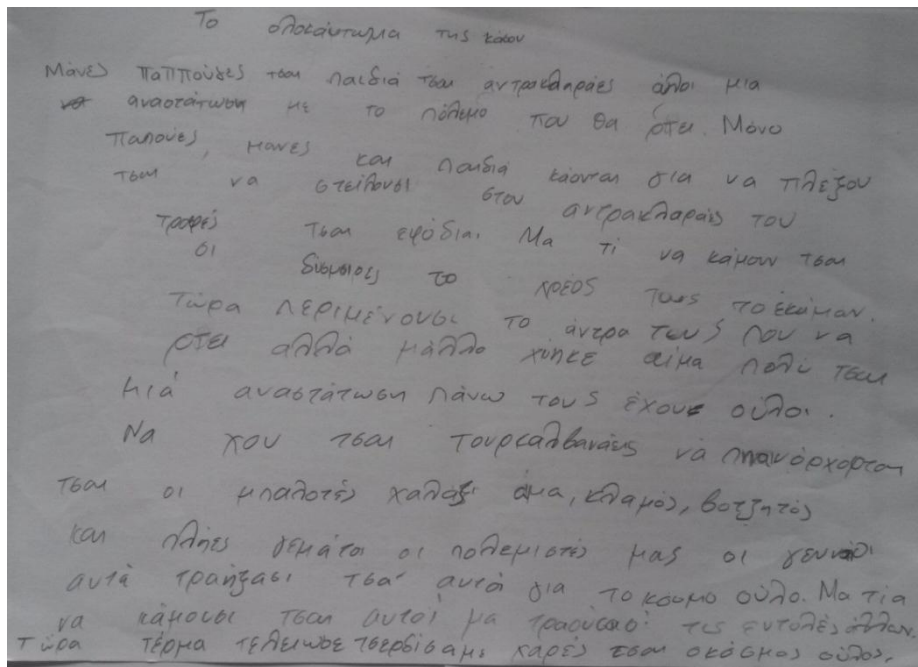 Το ολοκάυτωμα της κάσου
Μάνες παππούδες τσαι παιδιά τσαι αντρακλαράες όλοι μια
αναστάτωση με το πόλεμο που θα ρτει. Μόνο
παπούες, μανες και παιδιά κάονται για να πλέξου
τσαι να στείλουσι στου αντρακλαράες του
τροφές τσαι εφόδια. Μα τι να κάμουν τσαι
οι δύσμοιρες το χρέος τους το έκαμαν.
Τώρα περιμένουσι το άντρα τους που να
ρτει αλλά μάλλο χύηκε αίμα πολύ τσαι
μιά αναστάτωση πάνω τους έχουε ούλοι.
Να χου τσαι τουρκαλβανάεις να
τσαι οι μπαλοτές χαλάζι άμα, κλαμός, βοτζητός
και πλήες γεμάτοι οι πολεμιστές μας οι γενναίοι
αυτά τραήξασι τσα' αυτά για το κόσμο ούλο. Μα τία
να κάμουσι τσαι αυτοί μα τις εντολές άλλων.
Τώρα τέρμα τέλειωσε χαρές τσαι ο κόσμος ούλος,